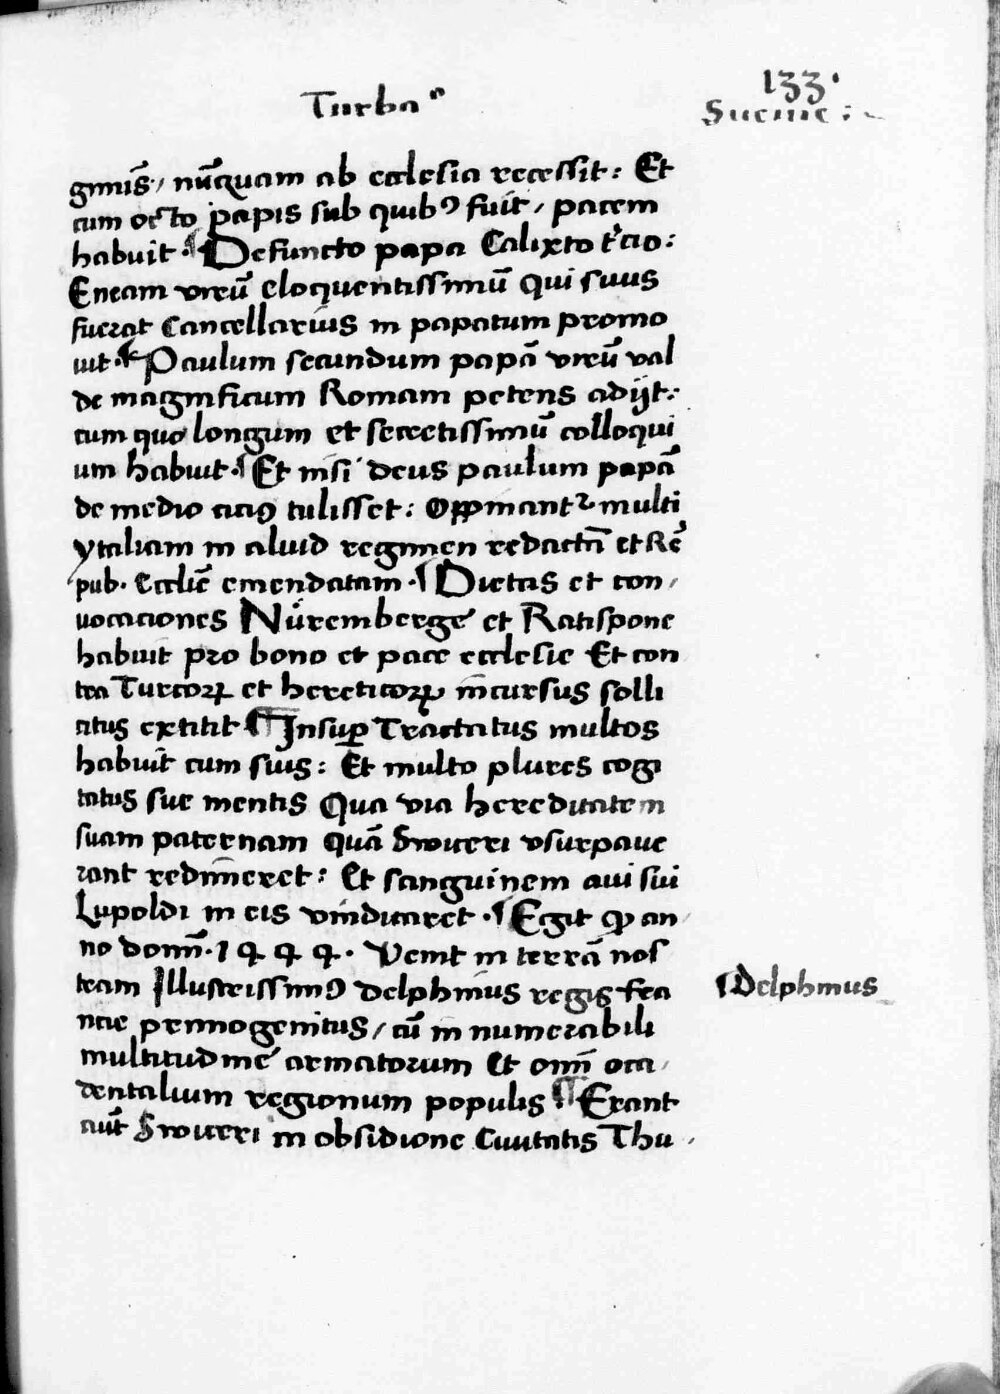 Turbaⁿ
133·
Sueuie:
giminis̄, nūquam ab ecclesia recessit: Et
cum octo papis sub quibꝰ fuit, pacem
habuit · ¶ Defuncto papa Calixto t'cio:
Eneam vreū eloquentissimū Qui suus
fuerat Cancellarius in papatum promo
uit · ¶ Paulum secundum papā vreū val
de magnificum Romam petens adijt:
cum quo longum et secretissimū colloqui
um habuit · ¶ Et nisi deus paulum papā
de medio ciciꝰ tulisset: Oppinantr multi
ytaliam in aliud regimen redactā et Rē
pub. Ecclie emendatam · ¶ Dietas et con
uocaciones Nüremberge et Ratispone
habuit pro bono et pace ecclesie Et con
tra Turcoꝝ et hereticoꝝ incursus solli
citus extitit ¶ Insuꝑ Tractatus multos
habuit cum suis: Et multo plures cogi
tatus sue mentis Qua via hereditatem
suam paternam quā Swiceri vsurpaue
rant redimeret: Et sanguinem aui sui
Lupoldi in eis vindicaret · ¶ Egit ꝙ an
no domī · 1444 · Venit in terrā nos
tram Illustrissimꝰ delphinus regis fra
ncie primogenitus, cū in numerabili
multitudine armatorum Et omī occi
dentalium regionum populis ¶ Erant
aūt Swiceri in obsidione Ciuitatis Thu
¶ Delphinus